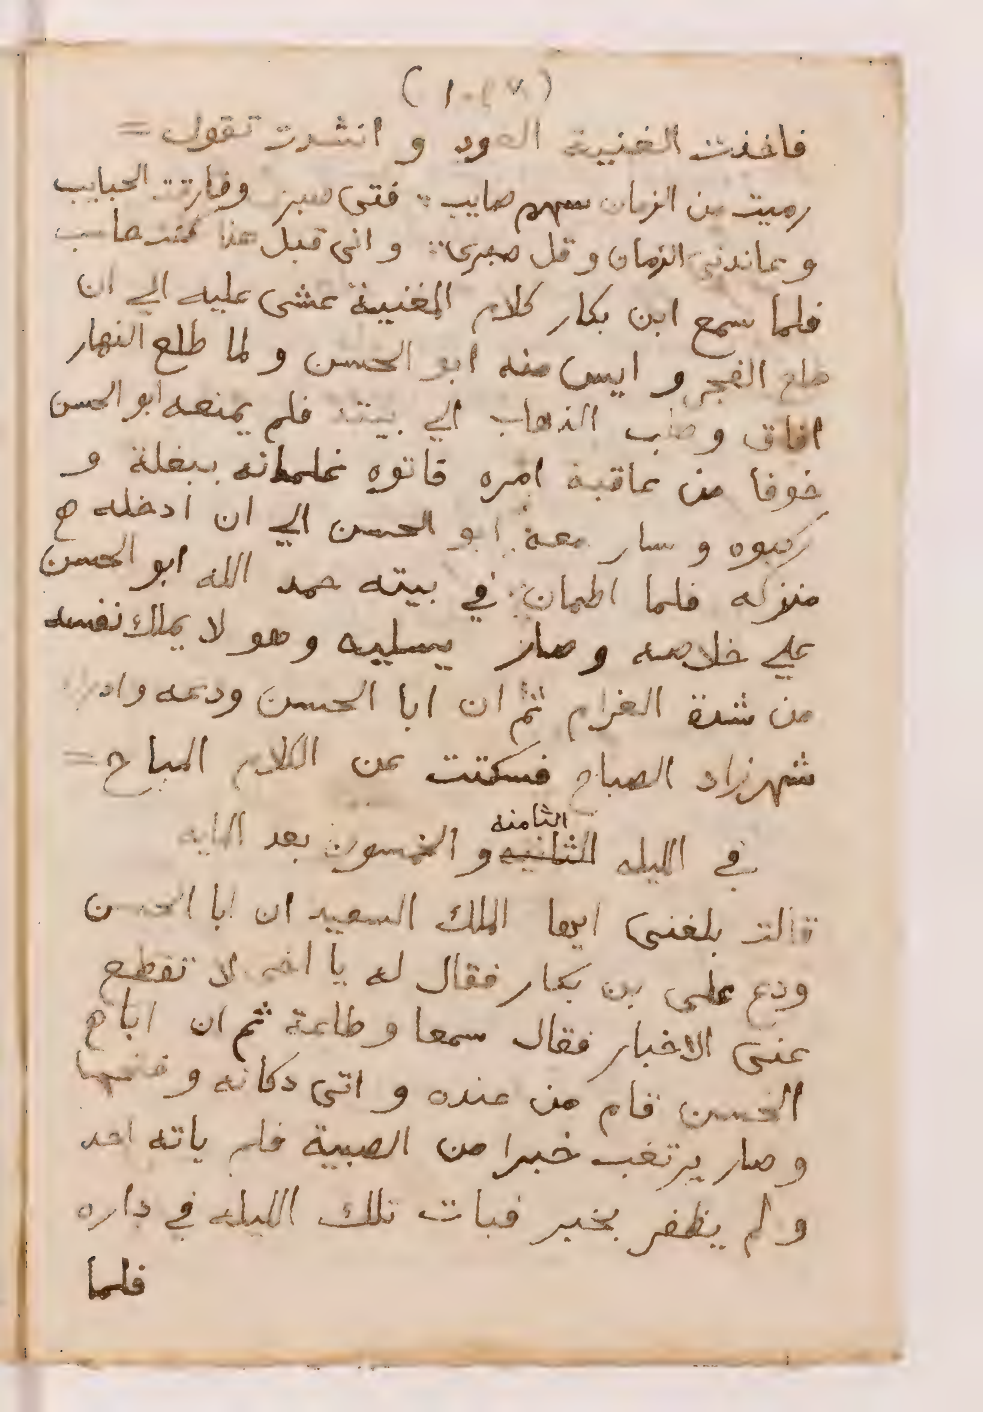 فاخذت المغنية العود و انشدت تقول =
رميت من الزمان سهم صايب فتى صبر وفارقت الحبايب
و عاندني الزمان و قل صبرى و انى قبل هذا كنت حاسب
فلما سمع ابن بكار كلام المغنية غشى عليه الي ان
طلع الفجر و ايس منه ابو الحسن و لما طلع النهار
افاق و طلب الذهاب الي بيته فلم يمنعه ابو الحسن
خوفا من عاقبة امره فاتوه غلمانه ببغلة و
ركبوه و سار معه ابو الحسن الي ان ادخله
منزله فلما اطمان في بيته حمد الله ابو الحسن
علي خلاصه و صار يسليه و هو لا يملك نفسه
من شدة الغرام ثم ان ابا الحسن ودعه وادرك
شهرزاد الصباح فسكتت عن الكلام المباح =
في الليله الثانيه الثامنه و الخمسون بعد المايه
قالت بلغنى ايها الملك السعيد ان ابا الحسن
ودع على بن بكار فقال له يا اخى لا تقطع
عنى الاخبار فقال سمعا و طاعة ثم ان ابا
الحسن قام من عنده و اتى دكانه و فتحها
و صار يرتقب خبرا من الصبية فلم ياته احد
و لم يظفر بخبر فبات تلك الليله في داره
فلما